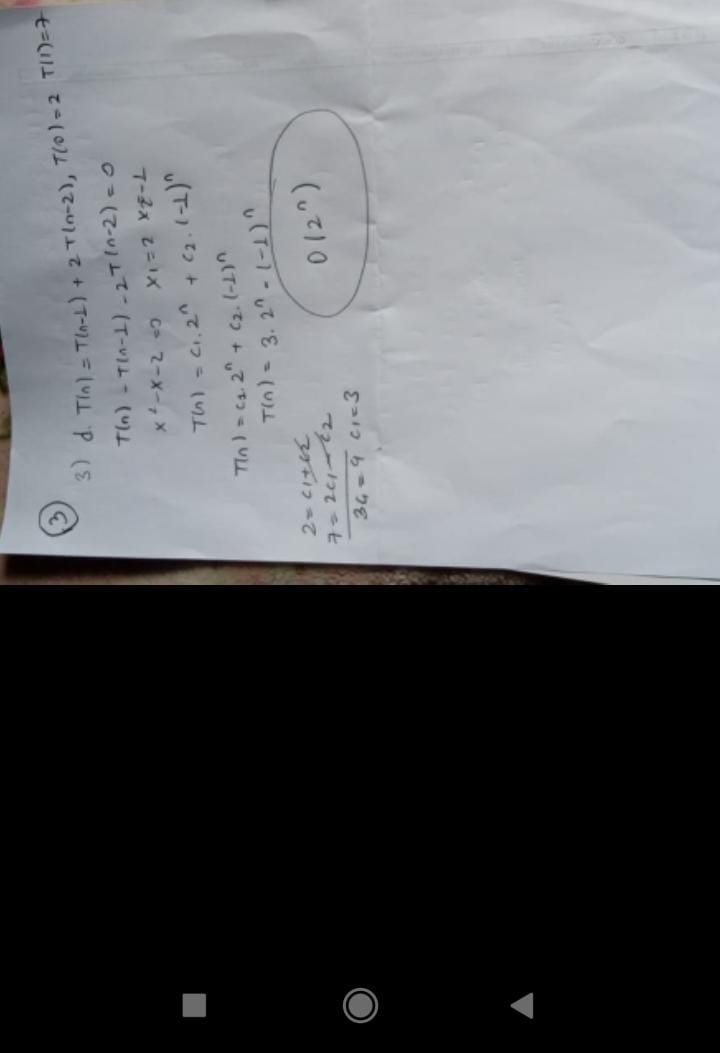 (3)
3) d. T(n) = T(n-1) + 2T(n-2), T(0) = 2 T(1) = 7
T(n) - T(n-1) - 2T(n-2) = 0
x²-x-2 => x1=2 x2=-1
T(n) = c1.2ⁿ + c2.(-1)ⁿ
T(n) = c1.2ⁿ + c2.(-1)ⁿ
T(n) = 3.2ⁿ - (-1)ⁿ
2 = c1+c2
7 = 2c1-c2
3c1=9 c1=3
O(2ⁿ)